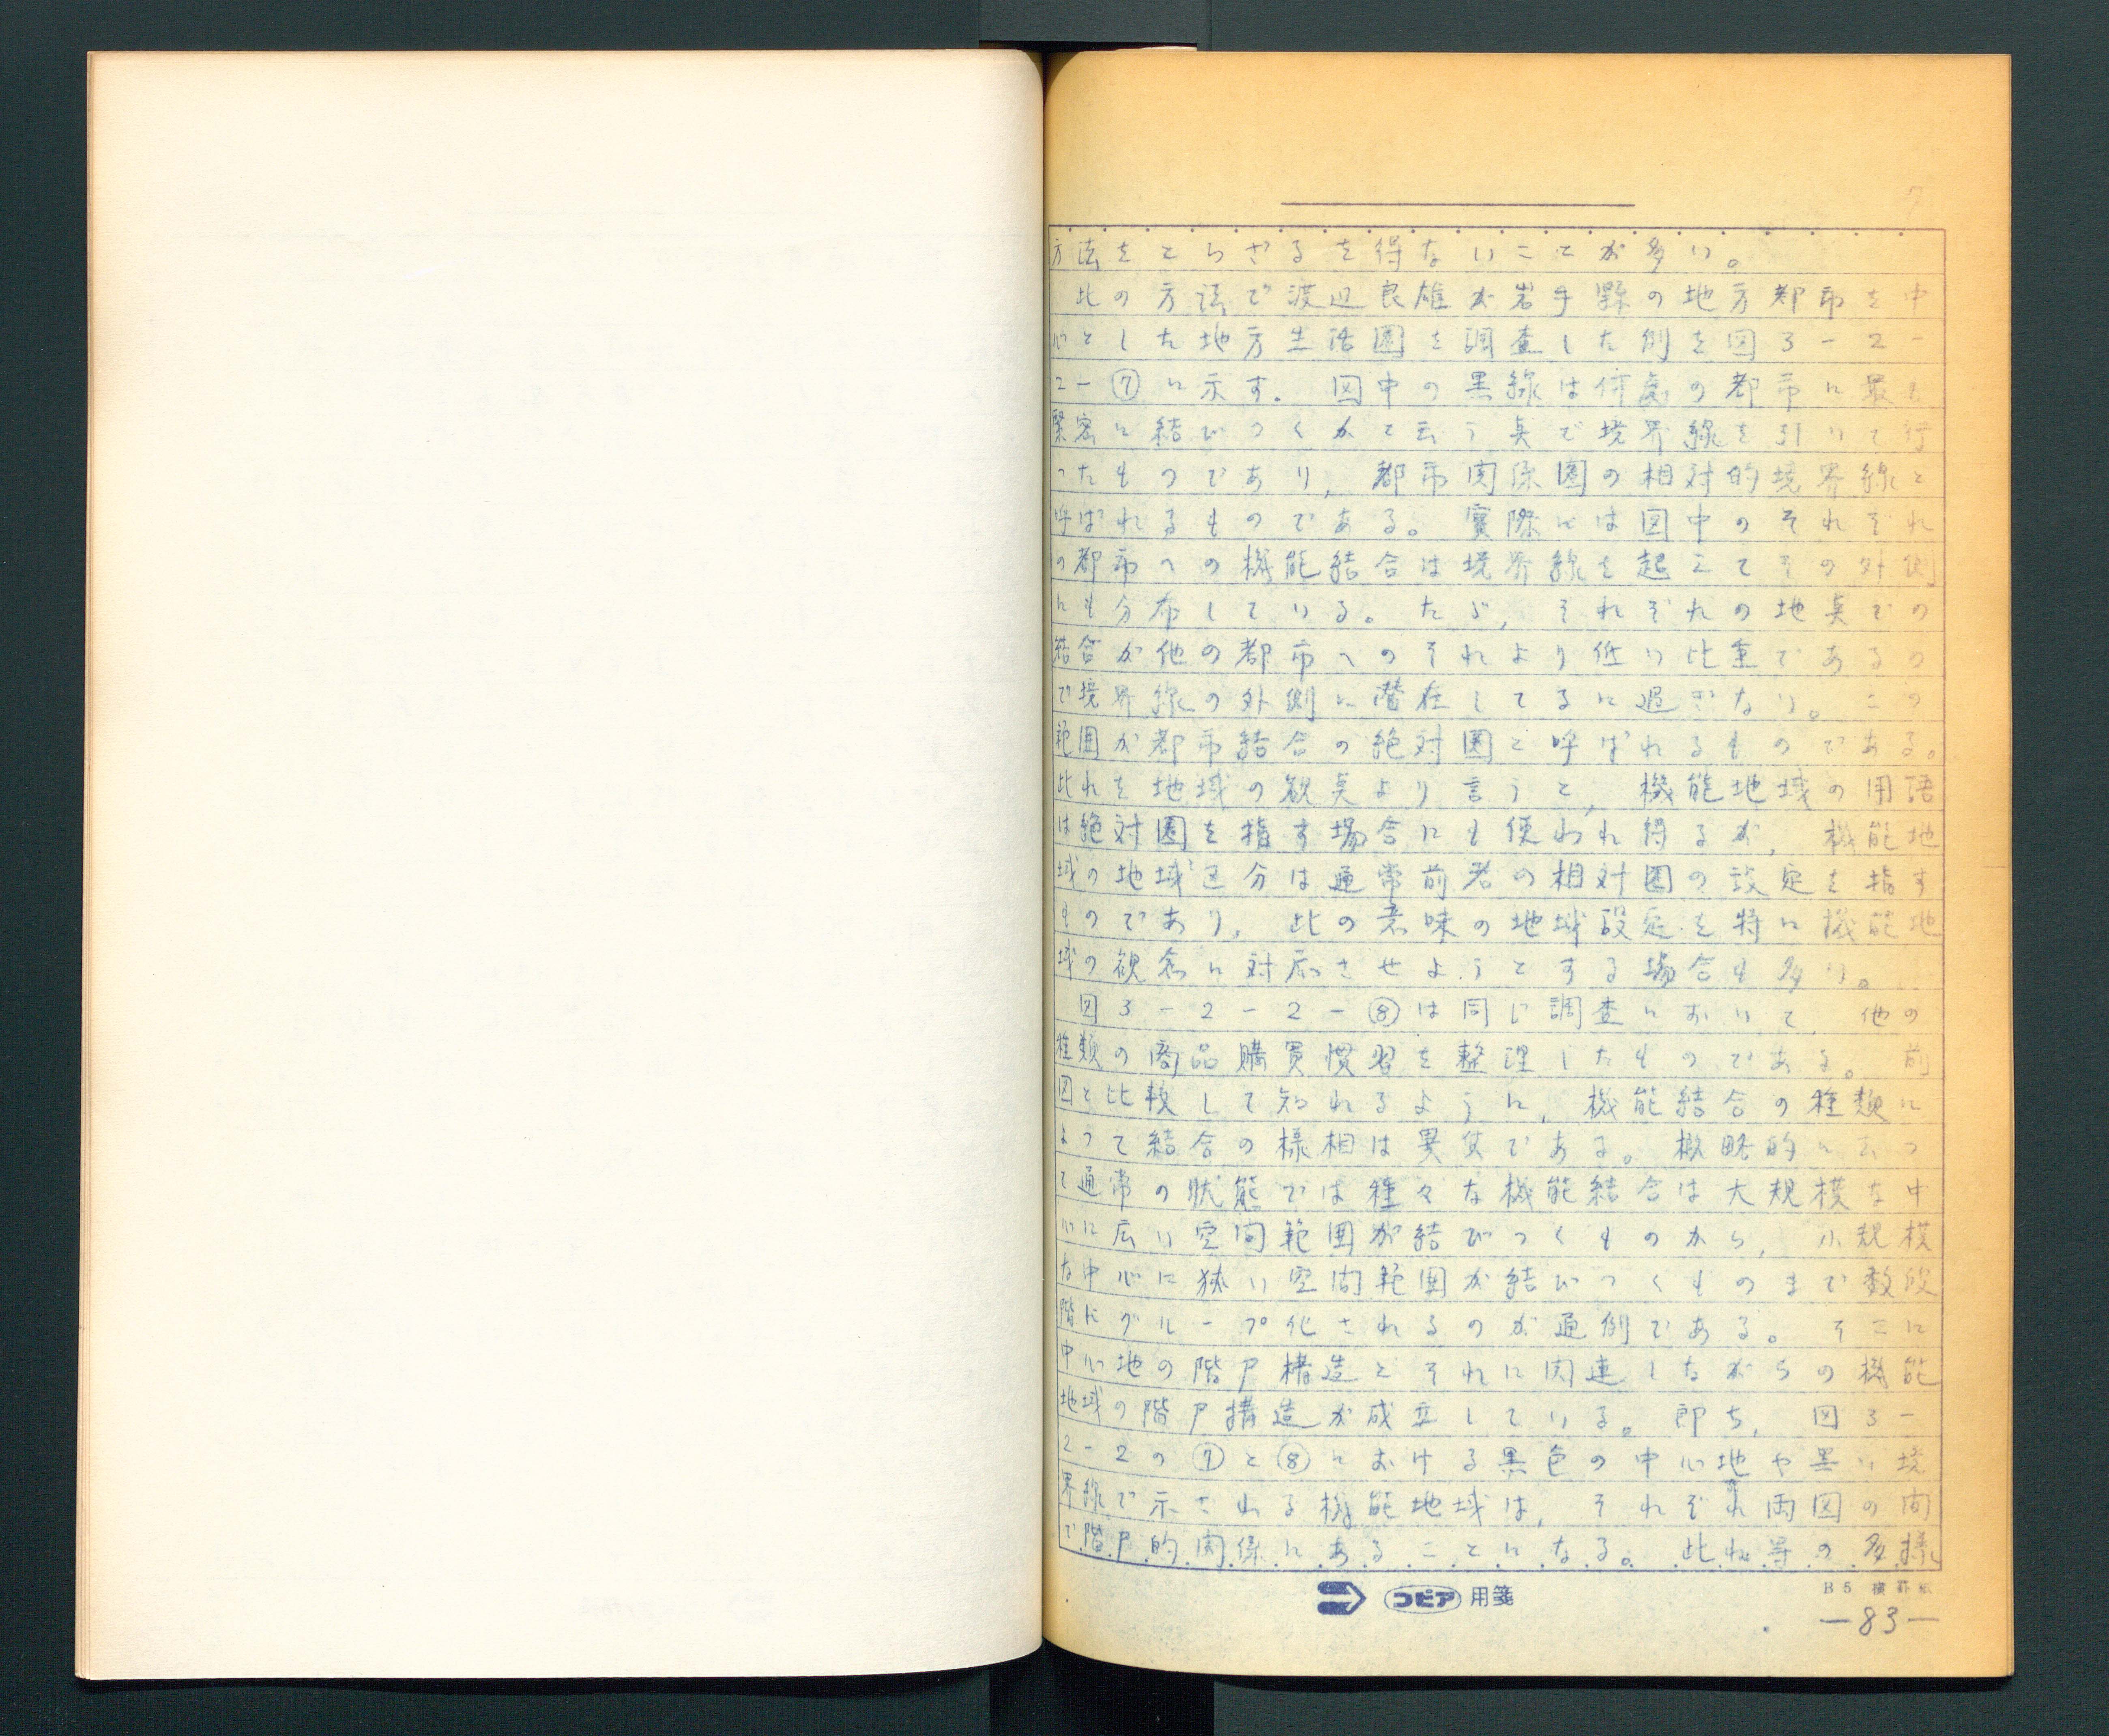 7
方法をとらざるを得ないことが多い。
此の方法で渡辺良雄が岩手縣の地方都市を中
心とした地方生活圏を調査した例を図3-2-
2-⑦に示す. 図中の黒線は何處の都市に最も
緊密に結びつくかと云う臭で境界線を引いて行
ったものであり, 都市関係圏の相対的境界線と
呼ばれるものである。實際には図中のそれぞれ
の都市への機能結合は境界線を起えてその外側
にも分布している。たゞ, それぞれの地臭での
結合が他の都市へのそれより低い比重であるの
で境界線の外側に潜在してるに過ぎない。この
範囲が都市結合の絶対圏と呼ばれるものである。
此れを地域の観臭より言うと, 機能地域の用語
は絶対圏を指す場合にも使われ得るが, 機能地
域の地域区分は通常前者の相対圏の設定を指す
ものであり, 此の意味の地域設定を特に機能地
域の観念に対応させようとする場合も多い。
図3-2-2-⑧は同じ調査において, 他の
種類の商品購買慣習を整理したものである。前
図と比較して知れるように, 機能結合の種類に
よって結合の様相は異質である。概略的に云っ
て通常の状態では種々な機能結合は大規模な中
心に広い空間範囲が結びつくものから, 小規模
な中心に狭い空間範囲が結びつくものまで数段
階にグループ化されるのが通例である。そこに
中心地の階尸構造とそれに関連しながらの機能
地域の階尸構造が成立している。即ち, 図3-
2-2の⑦と⑧における黒色の中心地や黒い境
界線で示される機能地域は, それぞれ両図の間
で階尸的関係にあることになる。此れ等の多様
コピア 用箋
B5 横罫紙
-83-